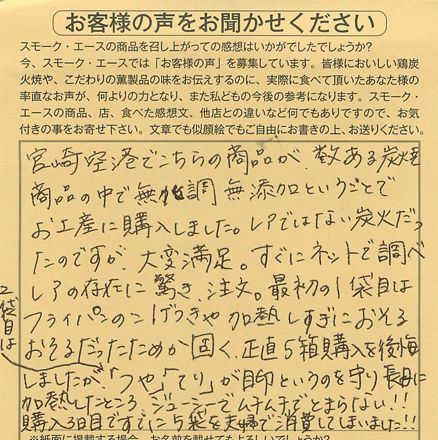 お客様の声をお聞かせください
スモーク・エースの商品を召し上がっての感想はいかがでしたでしょうか?
今、スモーク・エースでは「お客様の声」を募集しています。皆様においしい鶏炭
火焼や、こだわりの薫製品の味をお伝えするのに、実際に食べて頂いたあなた様の
率直なお声が、何よりの力となり、また私どもの今後の参考になります。スモーク・
エースの商品、店、食べた感想文、他店との違いなど何でもありですので、お気
付きの事をお寄せ下さい。文章でも似顔絵でもご自由にお書きの上、お送りください。
宮崎空港でこちらの商品が、数ある炭焼
商品の中で無化調 無添加ということで
お土産に購入しました。レアではない炭火だっ
たのですが、大変満足。すぐにネットで調べ
レアの存在に驚き、注文。最初の1袋目は
フライパンのこげつきや 加熱しすぎにおそる
おそるだったためか 固く、正直5箱購入を後悔
2袋目は
しましたが、「つや」「てり」が目印というのを守り 長目に
加熱したところ、ジューシームチムチでとまらない!!
購入3日目ですでに5袋を夫婦で消費してしまいました!!
※紙面に掲載する場合、お名前を載せてもよろしいでしょうか?